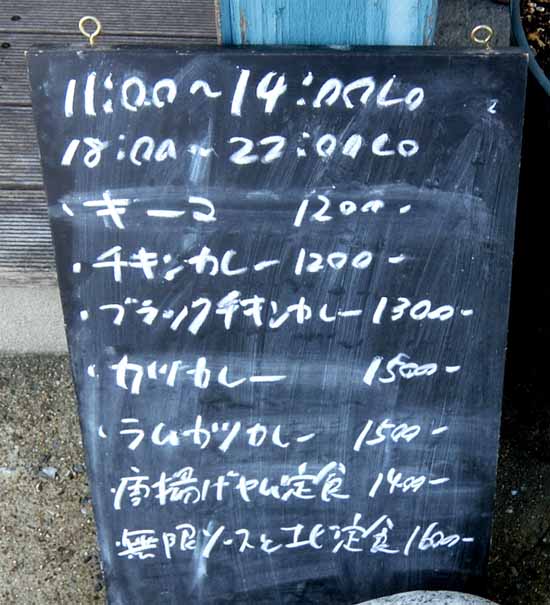 11:00～14:00LO
18:00～22:00LO
・キーマ 1200-
・チキンカレー 1200-
・ブラックチキンカレー 1300-
・カツカレー 1500-
・ラムカツカレー 1500-
・唐揚げヤム定食 1400-
・無限ソースと 定食 1600-